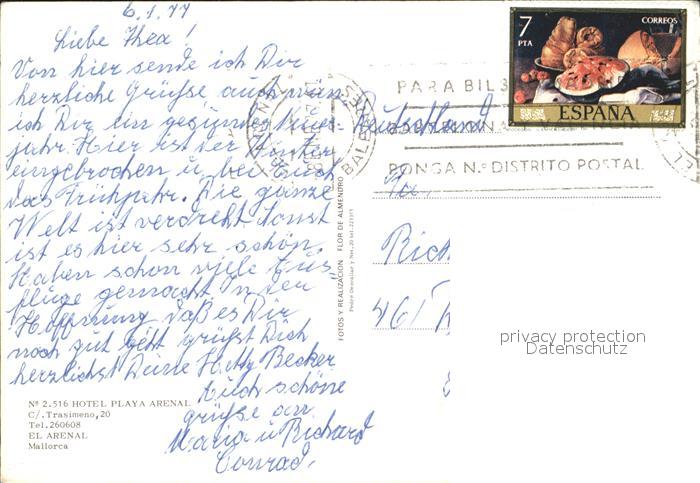 6.1.77
Liebe Thea!
Von hier sende ich Dir
herzliche Grüße auch wün
ich Dir ein gesundes Neues
jahr. Hier ist der Winter
eingebrochen u bei euch
das Frühjahr. Die ganze
Welt ist verdreht. Sonst
ist es hier sehr schön.
Haben schon viele Aus-
flüge gemacht. In der
Hoffnung daß es Dir
noch gut geht grüßt Dich
herzlichst Deine Hetty Becker
Auch schöne
grüße an
Maria u Richard
Conrad.
Nº 2.516 HOTEL PLAYA ARENAL
C/. Trasimeno, 20
Tel. 260608
EL ARENAL
Mallorca
FOTOS Y REALIZACION FLOR DE ALMENDRO
7
PTA
CORREOS
ESPAÑA
PARA BILB
PONGA N.º DISTRITO POSTAL
BALEARES
Deutschland
Rich
461
privacy protection
Datenschutz